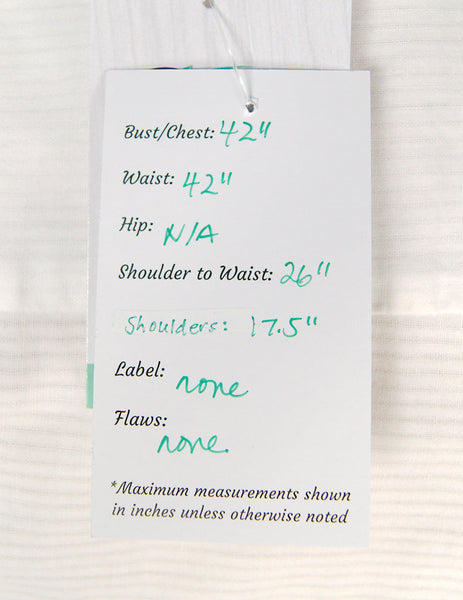 Bust/Chest: 42"
Waist: 42"
Hip: N/A
Shoulder to Waist: 26"
Shoulders: 17.5"
Label: none
Flaws: none.
*Maximum measurements shown
in inches unless otherwise noted